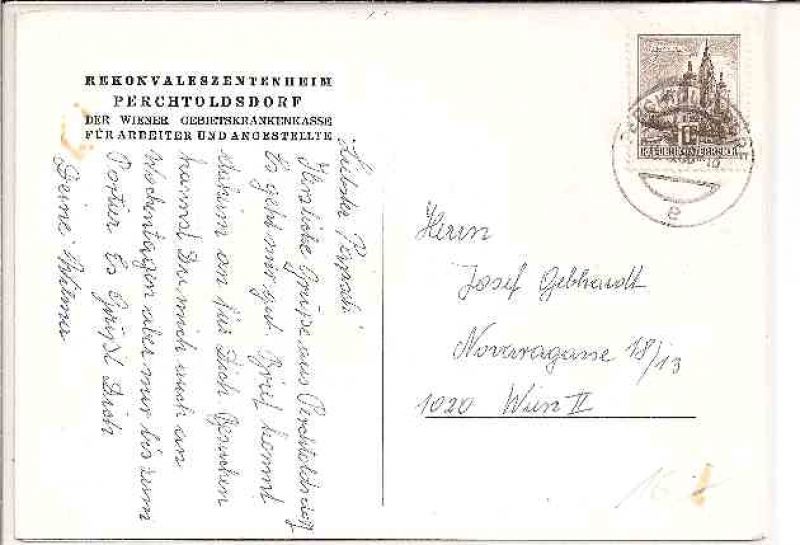 REKONVALESZENTENHEIM
PERCHTOLDSDORF
DER WIENER GEBIETSKRANKENKASSE
FÜR ARBEITER UND ANGESTELLTE
Herzliche Grüße aus Perchtoldsdorf
Es geht mir gut. Brief kommt
für Dich
kannst Du mich auch an
Wochentagen aber nur bis zum
Portier Es Grüßt Dich
Deine
REPUBLIK ÖSTERREICH
e
Herrn
Josef Gebhardt
Novaragasse 18/13
1020 Wien II